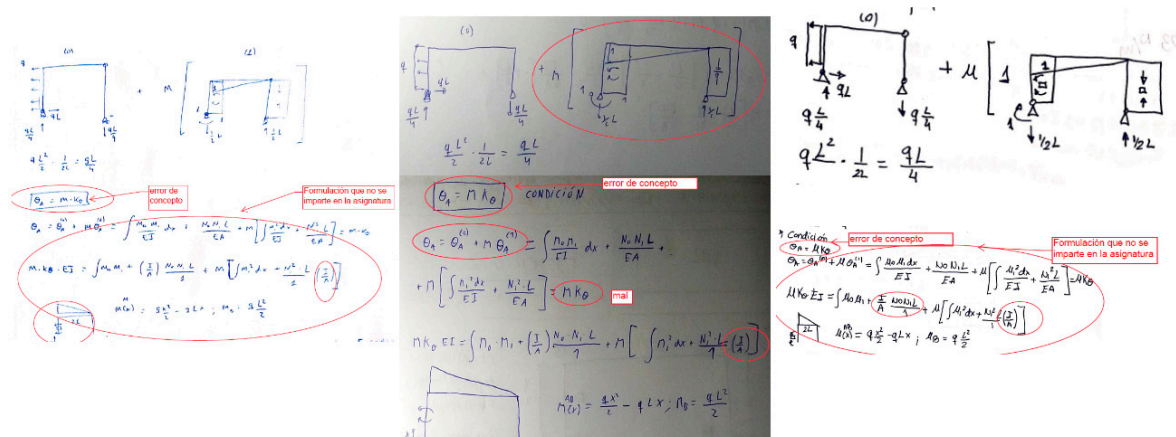 (0)
(1)
q
+ M
1
qL
qL/4
qL/4
1/2L
1/2L
qL²/2 · 1/2L = qL/4
θA = M·Kθ
error de
concepto
Formulación que no se
imparte en la asignatura
θA = θA(0) + M θA(1) = ∫ M0 M1/EI dx + N0 N1 L/EA + M [∫ M1² dx/EI + N1² L/EA] = M·Kθ
M·Kθ·EI = ∫ M0 M1 + (I/A) N0 N1 L/1 + M [∫ M1² dx + N1² L/1 (I/A)]
2L
M(x) = qx²/2 - qLx ; MB = qL²/2
(0)
q
+ M
1
1
qL
qL/4
qL/4
qL²/2 · 1/2L = qL/4
θA = M Kθ
CONDICIÓN
error de concepto
θA = θA(0) + M θA(1) = ∫ M0 M1/EI dx + N0 N1 L/EA +
+ M [∫ M1² dx/EI + N1² · L/EA] = M Kθ
mal
M Kθ EI = ∫ M0 · M1 + (I/A) N0 · N1 L/1 + M [∫ M1² dx + N1² · L/1 (I/A)]
M(x)AB = qx²/2 - qLx ; MB = qL²/2
(0)
q
+ M
1
1
qL
qL/4
qL/4
1/2L
1/2L
qL²/2 · 1/2L = qL/4
Condición
θA = M Kθ
error de concepto
Formulación que no se
imparte en la asignatura
θA = θA(0) + M θA(1) = ∫ M0 M1 dx/EI + N0 N1 L/EA + M [∫ M1² dx/EI + N1² L/EA] = M Kθ
M Kθ EI = ∫ M0 M1 + I/A N0 N1 L/1 + M [∫ M1² dx + N1² L/1 (I/A)]
2L
M(x)AB = q x²/2 - qLx ; MB = q L²/2